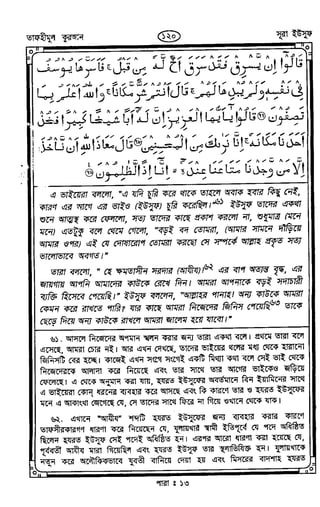 তাফহীমুল কুরআন
১২০
সূরা ইউসুফ
قَالُوْٓا اِنْ يَّسْرِقْ فَقَدْ سَرَقَ اَخٌ لَّهٗ مِنْ قَبْلُ ۚ فَاَسَرَّهَا يُوْسُفُ
فِيْ نَفْسِهٖ وَلَمْ يُبْدِهَا لَهُمْ ۚ قَالَ اَنْتُمْ شَرٌّ مَّكَانًا ۚ وَاللّٰهُ اَعْلَمُ بِمَا
تَصِفُوْنَ ۝ قَالُوْا يٰٓاَيُّهَا الْعَزِيْزُ اِنَّ لَهٗٓ اَبًا شَيْخًا كَبِيْرًا فَخُذْ
اَحَدَنَا مَكَانَهٗ ۚ اِنَّا نَرٰىكَ مِنَ الْمُحْسِنِيْنَ ۝ قَالَ مَعَاذَ اللّٰهِ اَنْ نَّاْخُذَ
اِلَّا مَنْ وَّجَدْنَا مَتَاعَنَا عِنْدَهٗٓ ۙ اِنَّآ اِذًا لَّظٰلِمُوْنَ ۝
এ ভাইয়েরা বললো, "এ যদি চুরি করে থাকে তাহলে অবাক হবার কিছু নেই,
কারণ এর আগে এর ভাইও (ইউসুফ) চুরি করেছিল।"৬১ ইউসুফ তাদের একথা
শুনে আত্মস্থ করে ফেললো, সত্য তাদের কাছে প্রকাশ করলো না, শুধুমাত্র (মনে
মনে) এতটুকু বলে থেমে গেলো, "বড়ই বদ তোমরা, (আমার সামনে দাঁড়িয়ে
আমার ওপর) এই যে দোষারোপ তোমরা করছো সে সম্পর্কে আল্লাহ প্রকৃত সত্য
ভালোভাবে অবগত।"
তারা বললো, "হে ক্ষমতাসীন সরদার (আযীয)!৬২ এর বাপ অত্যন্ত বৃদ্ধ, এর
জায়গায় আপনি আমাদের কাউকে রেখে দিন। আমরা আপনাকে বড়ই সদাচারী
ব্যক্তি হিসেবে পেয়েছি।" ইউসুফ বললেন, "আল্লাহর পানাহ! অন্য কাউকে আমরা
কেমন করে রাখতে পারি? যার কাছে আমরা নিজেদের জিনিস পেয়েছি৬৩ তাকে
ছেড়ে দিয়ে অন্য কাউকে রাখলে আমরা জালেম হয়ে যাবো।"
৬১. আসলে নিজেদের অপমান স্খলন করার জন্য তারা একথা বলে। প্রথমে তারা বলে
এসেছে, আমরা চোর নই। আর এখন দেখছে, তাদের ভাইয়ের থলের মধ্য থেকে হারানো
জিনিসটি বের হচ্ছে। কাজেই এখন সংগে সংগেই একটি মিথ্যা কথা বলে সেই ভাই থেকে
নিজেদেরকে আলাদা করে নিয়েছে এবং তার সাথে তার আগের ভাইকেও জড়িয়ে
ফেলেছে। এ থেকে অনুমান করা যায়, হযরত ইউসুফের অবর্তমানে বিন ইয়ামিনের সাথে
এ ভাইয়েরা কোন্ ধরনের ব্যবহার করে আসছে এবং কি কারণে তার ও হযরত ইউসুফের
মনে এ আকাংখা জেগেছে যে, সে তাদের সাথে ফিরে না গিয়ে ওখানে থেকে যাক।
৬২. এখানে "আযীয" শব্দটি হযরত ইউসুফের জন্য ব্যবহার করার কারণে
তাফসীরকারগণ ধারণা করে নিয়েছেন যে, যুলায়খার স্বামী ইতিপূর্বে যে পদে অধিষ্ঠিত
ছিলেন হযরত ইউসুফ সেই পদেই অধিষ্ঠিত হন। এরপর আরো ধারণা করা হয়েছে যে,
পূর্ববর্তী আযীয মারা গিয়েছিল এবং হযরত ইউসুফ তার স্থলাভিষিক্ত হন। যুলায়খাকে
নতুন করে অলৌকিকভাবে যুবতী বানিয়ে দেয়া হয় এবং মিসরের বাদশাহ হযরত
পারা ঃ ১৩